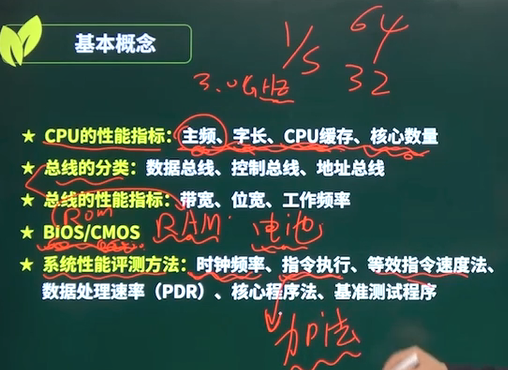 基本概念
1/S 64
3.0GHz 32
★ CPU的性能指标：主频、字长、CPU缓存、核心数量
★ 总线的分类：数据总线、控制总线、地址总线
★ 总线的性能指标：带宽、位宽、工作频率
Rom
★ BiOS/CMOS RAM 电池
★ 系统性能评测方法：时钟频率、指令执行、等效指令速度法、
数据处理速率（PDR）、核心程序法、基准测试程序
加权法